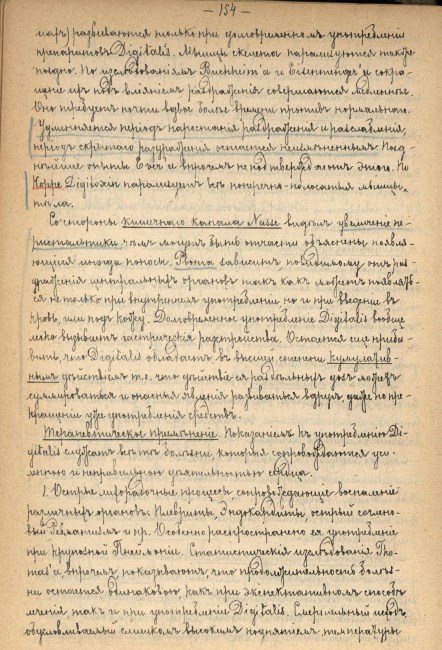 — 154 —
иахъ развиваются только при долговременномъ употребленіи
препаратовъ Digitalis. Мышцы скелета парализуются также
поздно. По изслѣдованіямъ Buchheim'а и Eisenmenger'а сокра-
щеніе ихъ подъ вліяніемъ раздраженія совершаются медленнѣе.
Оно требуетъ почти вдвое болѣе времени противъ нормальнаго.
Удлиняется періодъ наростанія раздраженія и разслабленія,
періодъ скрытаго раздраженія остается неизмѣненнымъ. Позд-
нѣйшіе опыты впрочемъ не подтверждаютъ этого. По
Коppe Digitoxin парализуетъ всѣ поперечно-полосатыя мышцы
тѣла.
Со стороны кишечнаго канала Nasse видѣлъ увеличеніе пе-
ристальтики чѣмъ могутъ быть отчасти объяснены появля-
ющіеся иногда поносы. Рвота зависитъ повидимому отъ раз-
драженія центральныхъ органовъ такъ какъ можетъ появлять-
ся не только при внутреннемъ употребленіи но и при введеніи въ
кровь или подъ кожу. Долговременное употребленіе Digitalis вообще
легко вызываетъ гастрическія разстройства. Остается еще приба-
вить, что Digitalis обладаетъ въ высшей степени кумулятив-
нымъ дѣйствіемъ т.е. что дѣйствіе отдѣльныхъ дозъ можетъ
суммироваться и опасныя явленія развиваться вдругъ даже по пре-
кращеніи уже употребленія средствъ.
Терапевтическое примѣненіе. Показаніемъ къ употребленію Di-
gitalis служатъ всѣ тѣ болѣзни которыя сопровождаются уси-
ленною и неправильною дѣятельностью сердца.
1. Острые лихорадочные процессы сопровождающіе воспаленіе
различныхъ органовъ. Плевриты, Эндокардиты острый сочлено-
вый Ревматизмъ и пр. Особенно распространено ея употребленіе
при крупозной Пнеймоніи. Статистическія изслѣдованія Tho-
mas'а впрочемъ показываютъ, что продолжительность болѣз-
ни остается одинаковою, какъ при экспектативномъ способѣ
леченія такъ и при употребленіи Digitalis. Смертельный исходъ,
обусловливаемый слишкомъ высокимъ поднятіемъ температуры